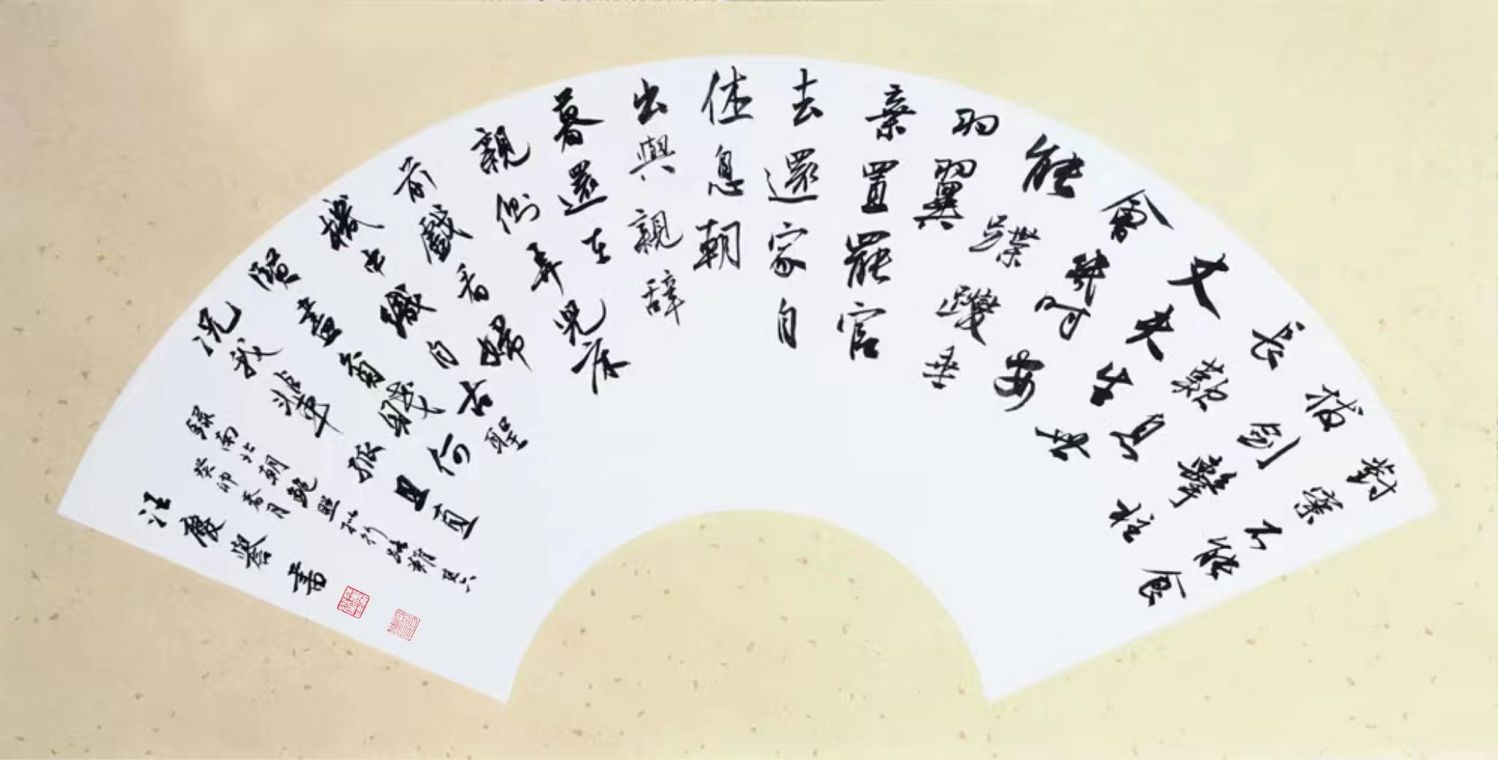 對案不能食
拔劍擊柱
長歎息
丈夫生世
會幾時安
能蹀躞垂
羽翼
棄置罷官
去還家自
休息朝
出與親辭
暮還在
親側弄兒床
前戲看婦
機中織自古聖
賢盡貧賤何
況我輩孤且直
錄南北朝鮑照擬行路難其六
癸卯春月
汪慶譽書